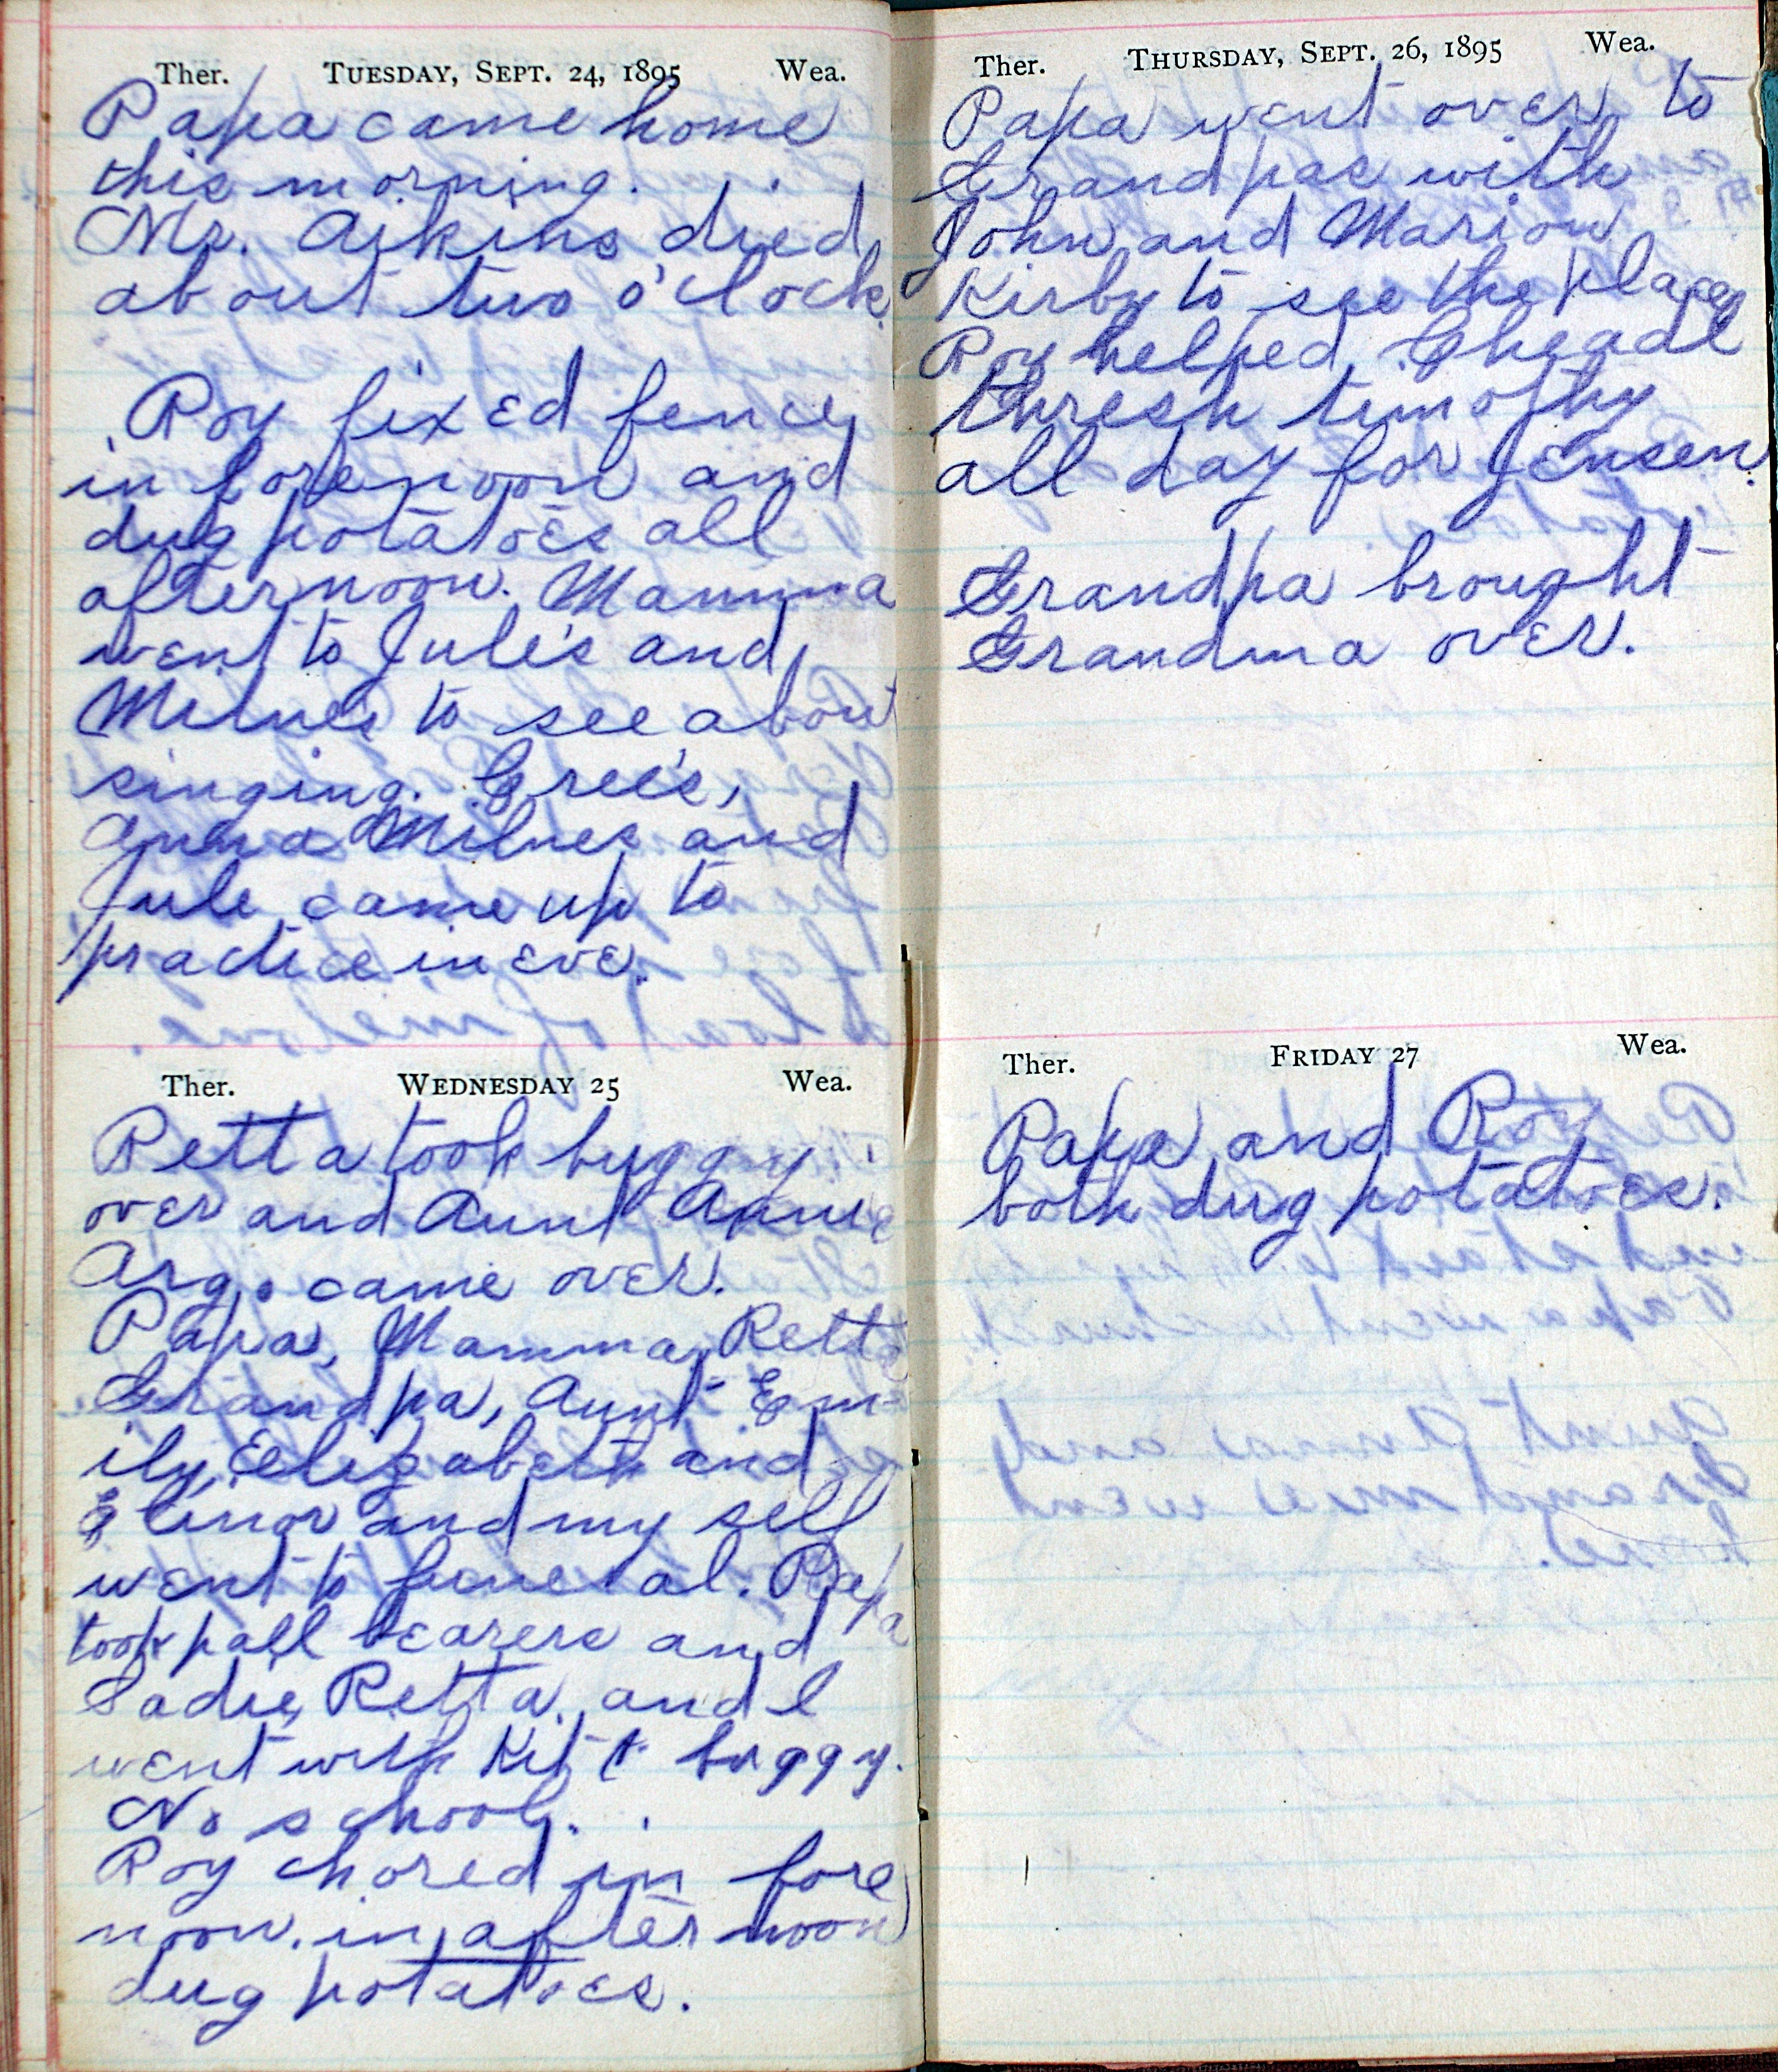 Ther. TUESDAY, SEPT. 24, 1895 Wea.
Papa came home
this morning.
Mr. Aikins died
about two o'clock.
Roy fixed fence
in forenoon and
dug potatoes all
afternoon. Mamma
went to Jule's and
Milnes to see about
singing. Gree's,
Anna Milnes and
Jule came up to
practice in eve.
Ther. WEDNESDAY 25 Wea.
Retta took buggy
over and Aunt Annie
Arg. came over.
Papa, Mamma, Retta
Grandpa, Aunt Em-
ily, Elizabeth and
Elinor and my self
went to funeral. Papa
took pall bearers and
Sadie, Retta, and I
went with Kit & buggy.
No school.
Roy chored in fore
noon. in after noon
dug potatoes.
Ther. THURSDAY, SEPT. 26, 1895 Wea.
Papa went over to
Grandpas with
John and Marion
Kirby to see the place
Roy helped
thresh timothy
all day for Jensen.
Grandpa brought
Grandma over.
Ther. FRIDAY 27 Wea.
Papa and Roy
both dug potatoes.